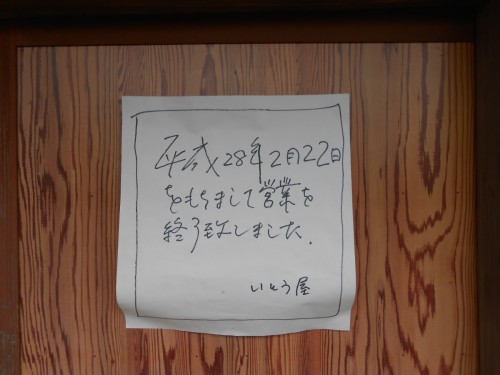 平成28年2月22日
をもちまして営業を
終了致しました.
いとう屋